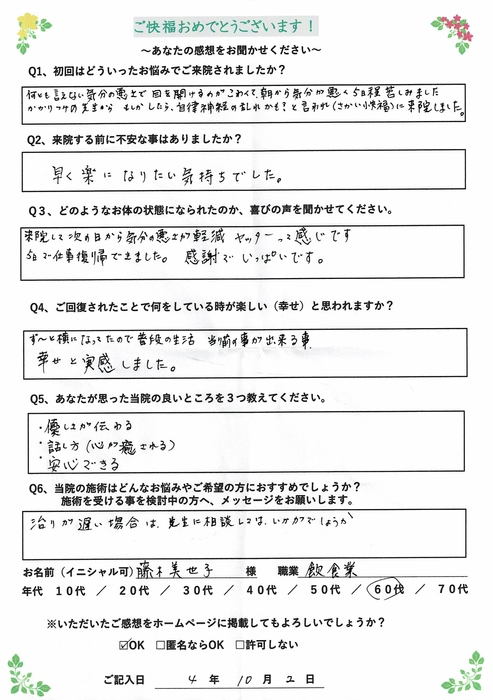 ご快福おめでとうございます！
～あなたの感想をお聞かせください～
Q1、初回はどういったお悩みでご来院されましたか？
何とも言えない気分の悪さで目を開けるのがこわくて、朝から気分が悪く5日程苦しみました
かかりつけの先生から もしかしたら、自律神経の乱れかも？と言われ(さかい快福)に来院しました。
Q2、来院する前に不安な事はありましたか？
早く楽になりたい気持ちでした。
Q３、どのようなお体の状態になられたのか、喜びの声を聞かせてください。
来院して次の日から気分の悪さが軽減 ヤッターって感じです
5日で仕事復帰できました。 感謝でいっぱいです。
Q4、ご回復されたことで何をしている時が楽しい（幸せ）と思われますか？
ず～と横になってたので普段の生活 当り前の事が出来る事
幸せと実感しました。
Q5、あなたが思った当院の良いところを３つ教えてください。
・優しさが伝わる
・話し方（心が癒される）
・安心できる
Q6、当院の施術はどんなお悩みやご希望の方におすすめでしょうか？
施術を受ける事を検討中の方へ、メッセージをお願いします。
治りが遅い場合は、先生に相談しては、いかがでしょうか
お名前（イニシャル可）藤木美世子 様 職業 飲食業
年代 １０代 ／ ２０代 ／ ３０代 ／ ４０代 ／ ５０代 ／ ６０代 ／ ７０代
※いただいたご感想をホームページに掲載してもよろしいでしょうか？
☑OK □匿名ならOK □許可しない
ご記入日 4 年 10 月 2 日